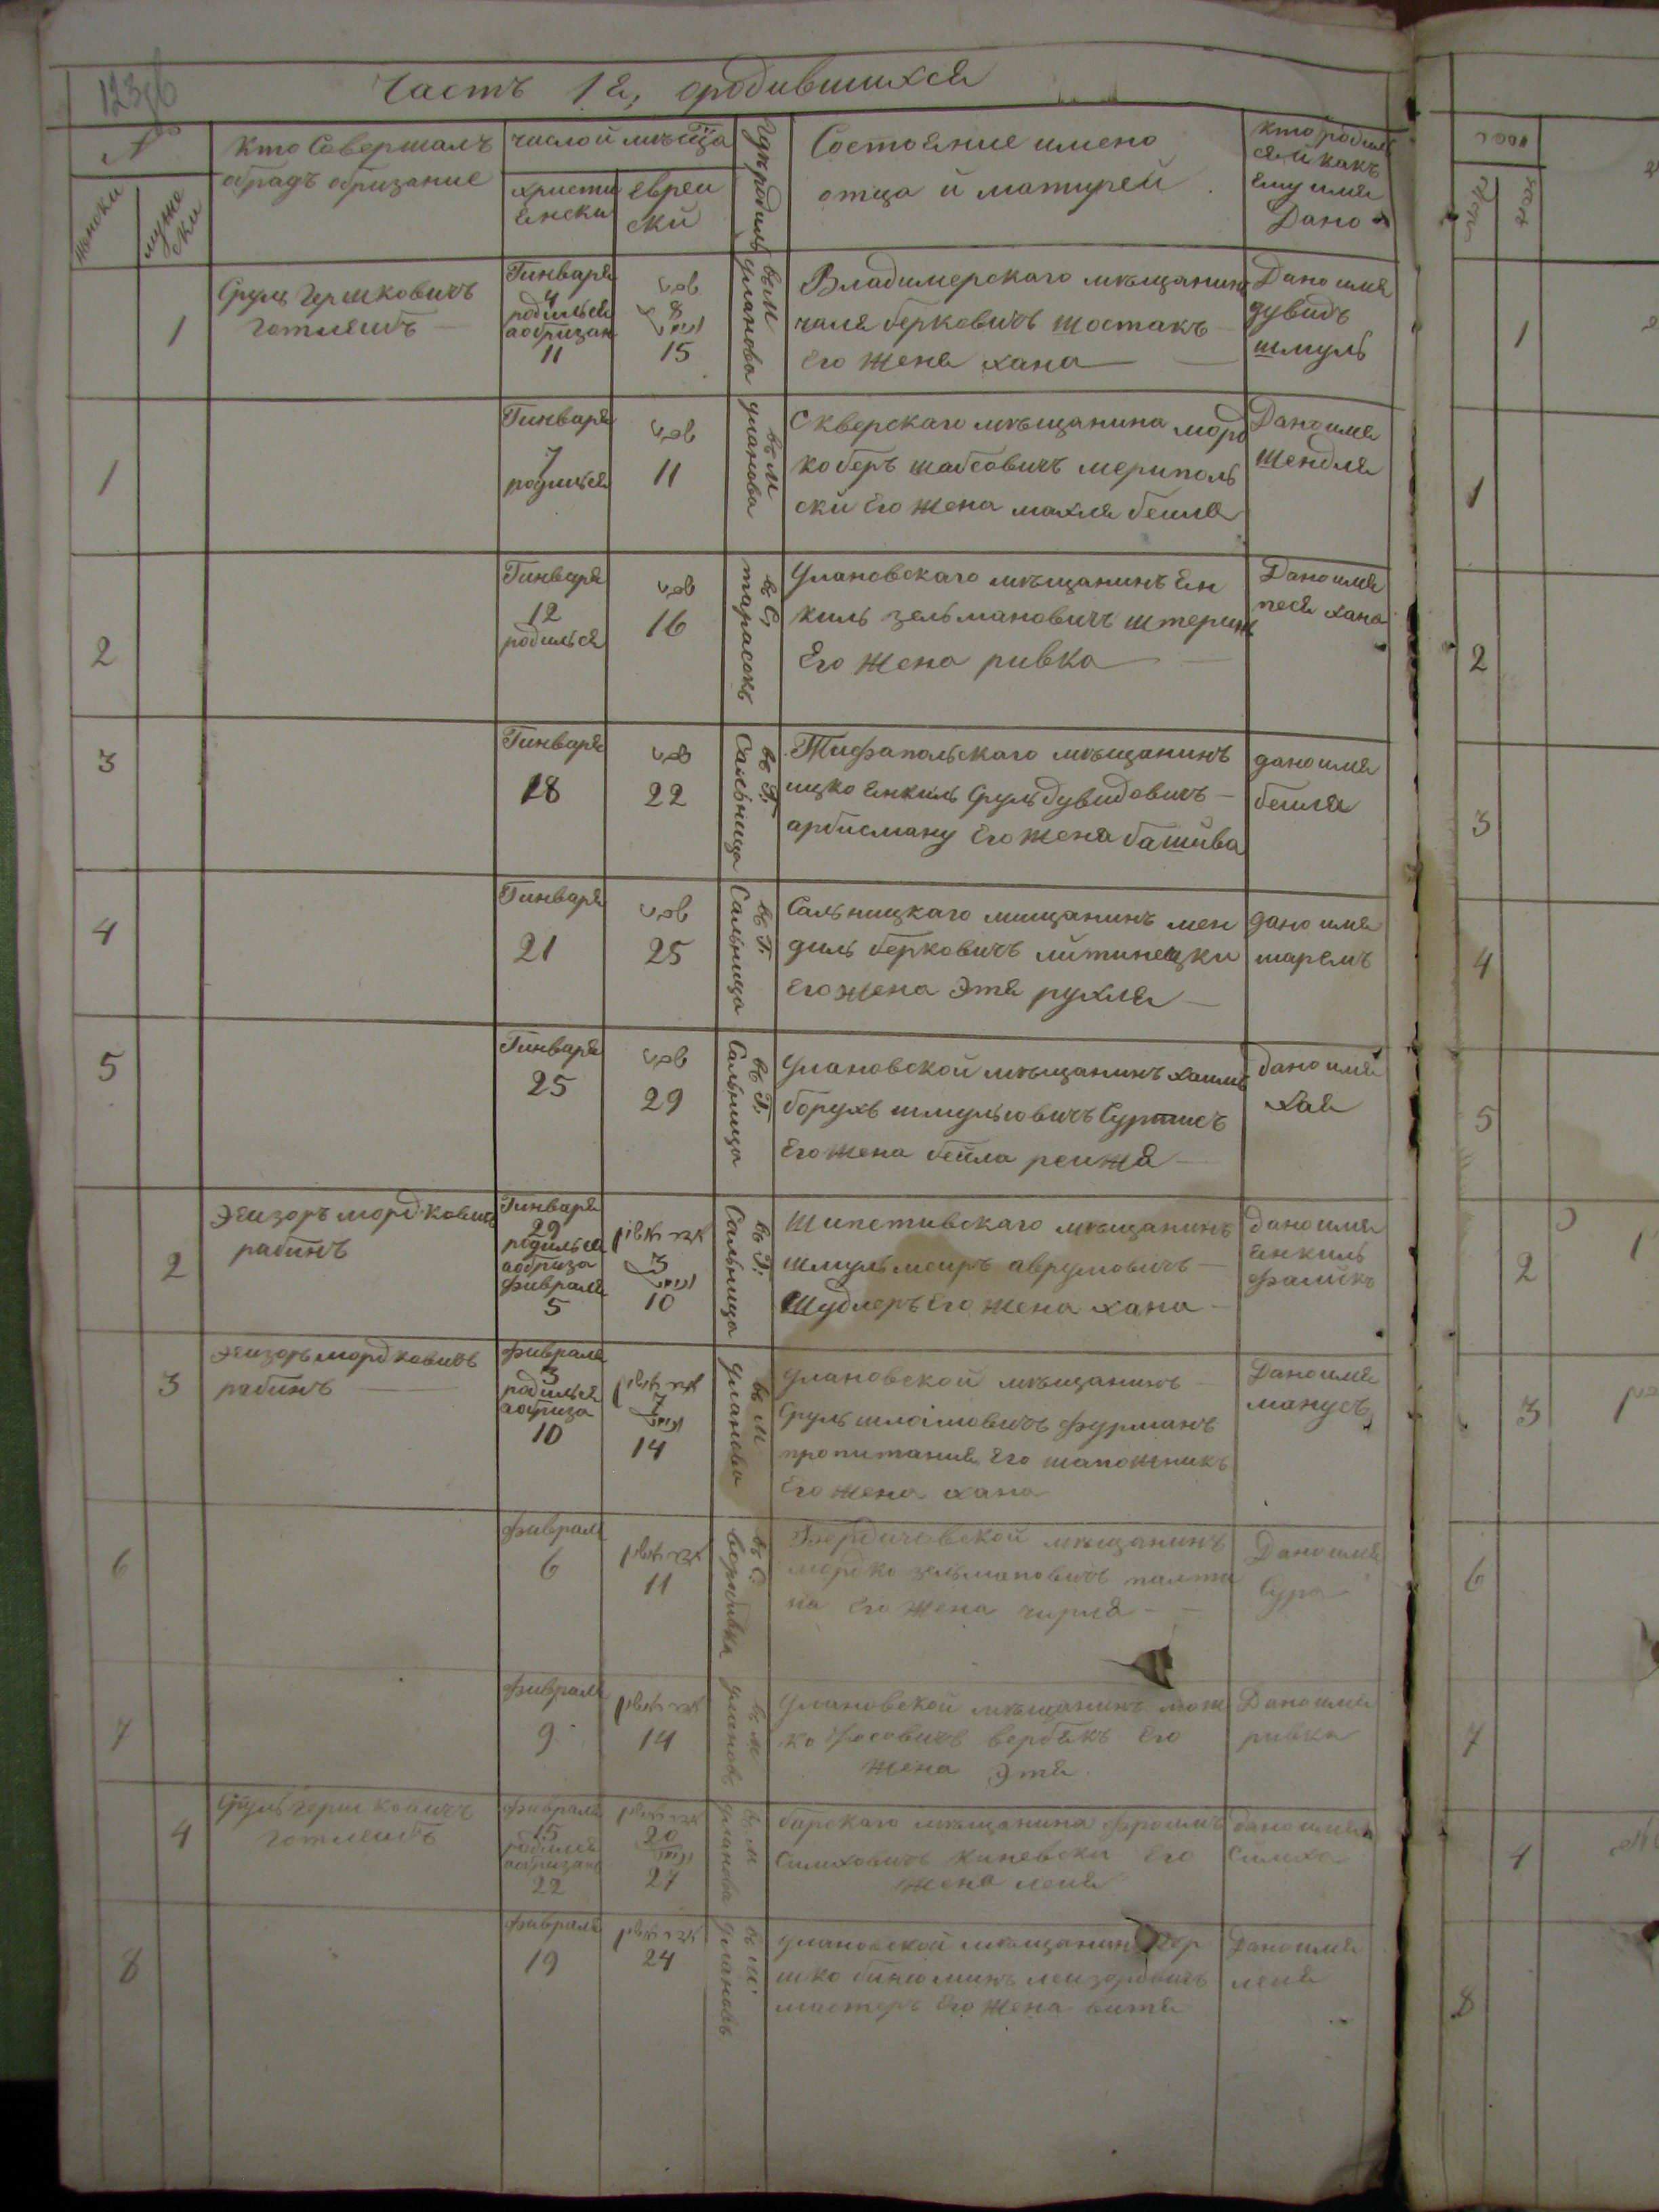 Часть 1я, ородившихся
№
женски
мужески
Кто Совершалъ
обрадъ обризание
числой мѣсца
христиенски
Евреиски
Гдѣ родилъ
Состояние имено
отца й матирей
кто родилсяй какъ
Ему имя
Дано
1
Сруль Гершковичъ
готлеибъ
Гинваря
4
родилься
аобризан
11
שבט
8
15
въ М
уланова
Владимерскаго мѣщанинъ
беркевичъ шостакъ
Его жена хана
Дано имя
дувидъ
шмуль
1
Гинваря
7
родилься
שבט
11
въ М
уланова
Скверскаго мѣщанина мордко
беръ шабсовичъ мериполь
ски Его жена махля беила
Дано имя
шендля
2
Гинваря
12
родилься
שבט
16
въ С,
тарасокъ
Улановскаго мѣщанинъ Ен
киль зельмановичъ
Его жена ривка
Дано имя
песя хана
3
Гинваря
18
שבט
22
въ Г.
Сальница
Тифапольскаго мѣщанинъ
ицко Енкиль Сруль дувидовичъ
арбисману Его жена башива
дано имя
беиля
4
Гинваря
21
שבט
25
въ Г.
Сальница
Сальницкаго мищанинъ мен
диль беркович литинецки
Его жена Этя рухля
дано имя
маремъ
5
Гинваря
25
שבט
29
въ Г.
Сальница
Улановской мѣщанинъ хаимъ
борухъ шмульовичъ
Его жена беила реижя
дано имя
Хая
2
мордковичъ
рабинъ
Гинваря
29
родилься
аобриза
фивраля
5
אדר ראשון
3
10
въ Г.
Сальница
Шипетивскаго мѣщанинъ
шмуль меиръ аврумовичъ
Шудлеръ Его жена хана
дано имя
Енкиль
фаишъ
3
мордковичъ
рабинъ
фивраля
3
родилься
аобриза
10
אדר ראשון
7
14
въ М
уланова
Улановской мѣщанинъ
Сруль шлоимовичъ фурманъ
пропитания Его шапошникъ
Его жена хана
Дано имя
манусъ
6
фивраля
6
אדר ראשון
11
въ С.
воробивка
Бердичовской мѣщанинъ
мордко зельмановичъ палти
на Его жена чирля
Дано имя
Сура
7
фивраля
9
אדר ראשון
14
въ М
улановъ
Улановской мѣщанинъ мош
ко Іосовичъ вербякъ Его
жена Этя
Дано имя
ривка
4
Сруль гершковичъ
готлеибъ
фивраля
15
родилься
аобризанъ
22
אדר ראשון
20
27
въ М
уланова
барскаго мѣщанина фроимъ
Симховичъ киневски Его
жена леия
дано имя
Симха
8
фивраля
19
אדר ראשון
24
въ М
улановъ
Улановской мѣщанинъ Гер
шко бинюминъ леизоровичъ
мистеръ Его жена витя
Дано имя
леия
1
1
2
3
4
5
2
3
6
7
4
8